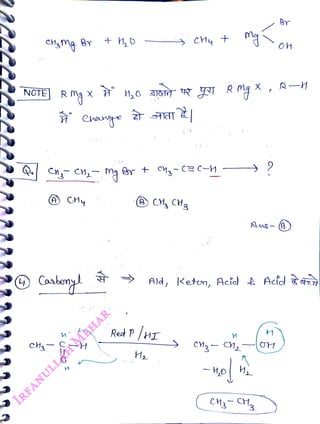 CH₃Mg Br + H₂O ⟶ CH₄ + Mg Br OH
NOTE R Mg X में H₂O डालने पर पूरा R Mg X, R—H
में change हो जाता है|
Q. CH₃—CH₂—Mg Br + CH₃—C≡C—H ⟶ ?
Ⓐ CH₄ Ⓑ CH₃ CH₃
Ans - Ⓑ
④ Carbonyl से ⇒ Ald, Keton, Acid & Acid के बच्चे
CH₃—C—H Red P / HI H₂ CH₃—CH₂—OH
O
H H H H
-H₂O H₂
CH₃—CH₃
IRFANULLAH MEHAR